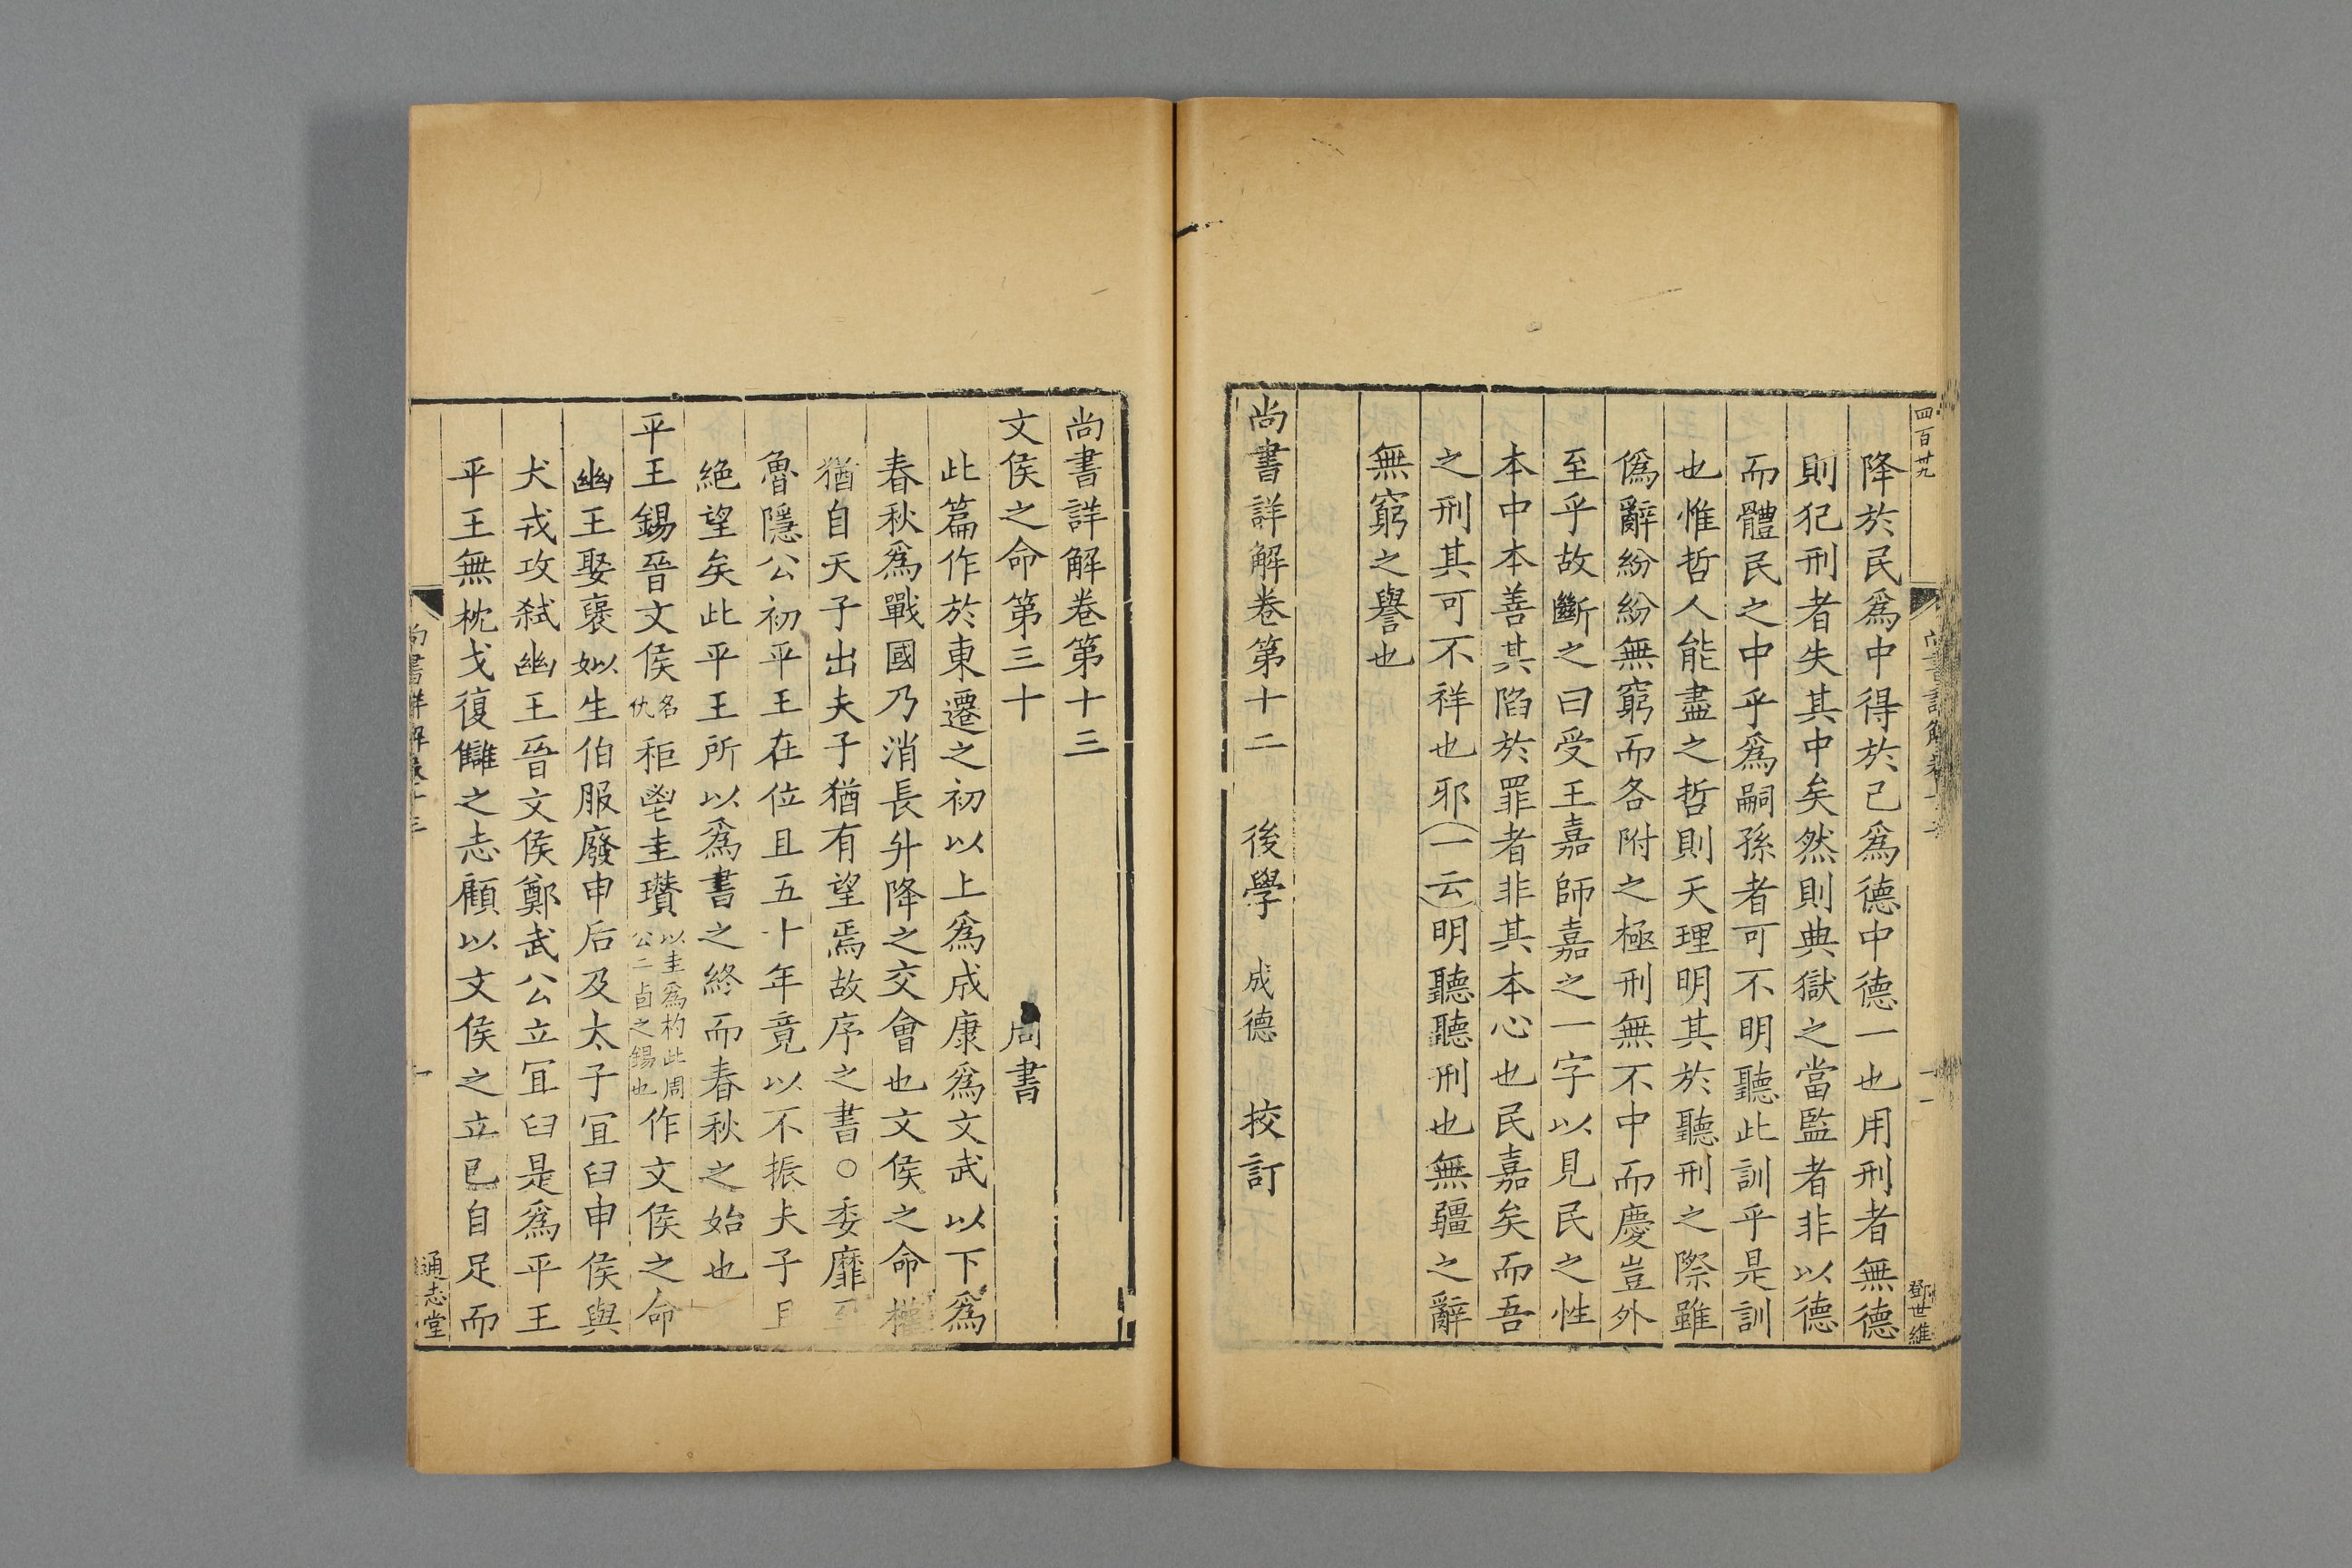 四百廿九
鄧世維
降於民爲中得於己爲德中德一也用刑者無德
則犯刑者失其中矣然則典獄之當監者非以德
而體民之中乎爲嗣孫者可不明聽此訓乎是訓
也惟哲人能盡之哲則天理明其於聽刑之際雖
僞辭紛紛無窮而各附之極刑無不中而慶豈外
至乎故斷之曰受王嘉師嘉之一字以見民之性
本中本善其陷於罪者非其本心也民嘉矣而吾
之刑其可不祥也邪(一云)明聽聽刑也無疆之辭
無窮之譽也
尚書詳解卷第十二 後學 成德 挍訂
尚書詳解卷第十三
文侯之命第三十 周書
此篇作於東遷之初以上爲成康爲文武以下爲
春秋爲戰國乃消長升降之交會也文侯之命權
猶自天子出夫子猶有望焉故序之書○委靡至
魯隱公初平王在位且五十年竟以不振夫子且
絕望矣此平王所以爲書之終而春秋之始也
平王錫晉文侯名仇秬鬯圭瓚以圭爲杓此周公二卣之錫也作文侯之命
幽王娶襃姒生伯服廢申后及太子宜臼申侯與
犬戎攻弑幽王晉文侯鄭武公立宜臼是爲平王
平王無枕戈復讎之志顧以文侯之立已自足而
尚書詳解卷十三
通志堂